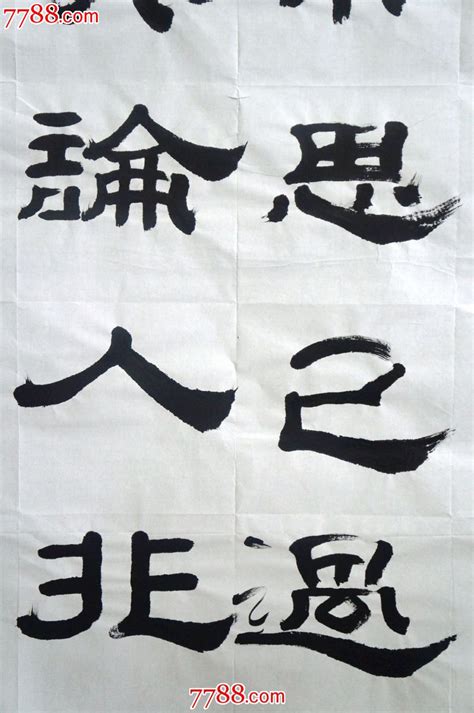 7788.com
思己過
論人非
7788.com